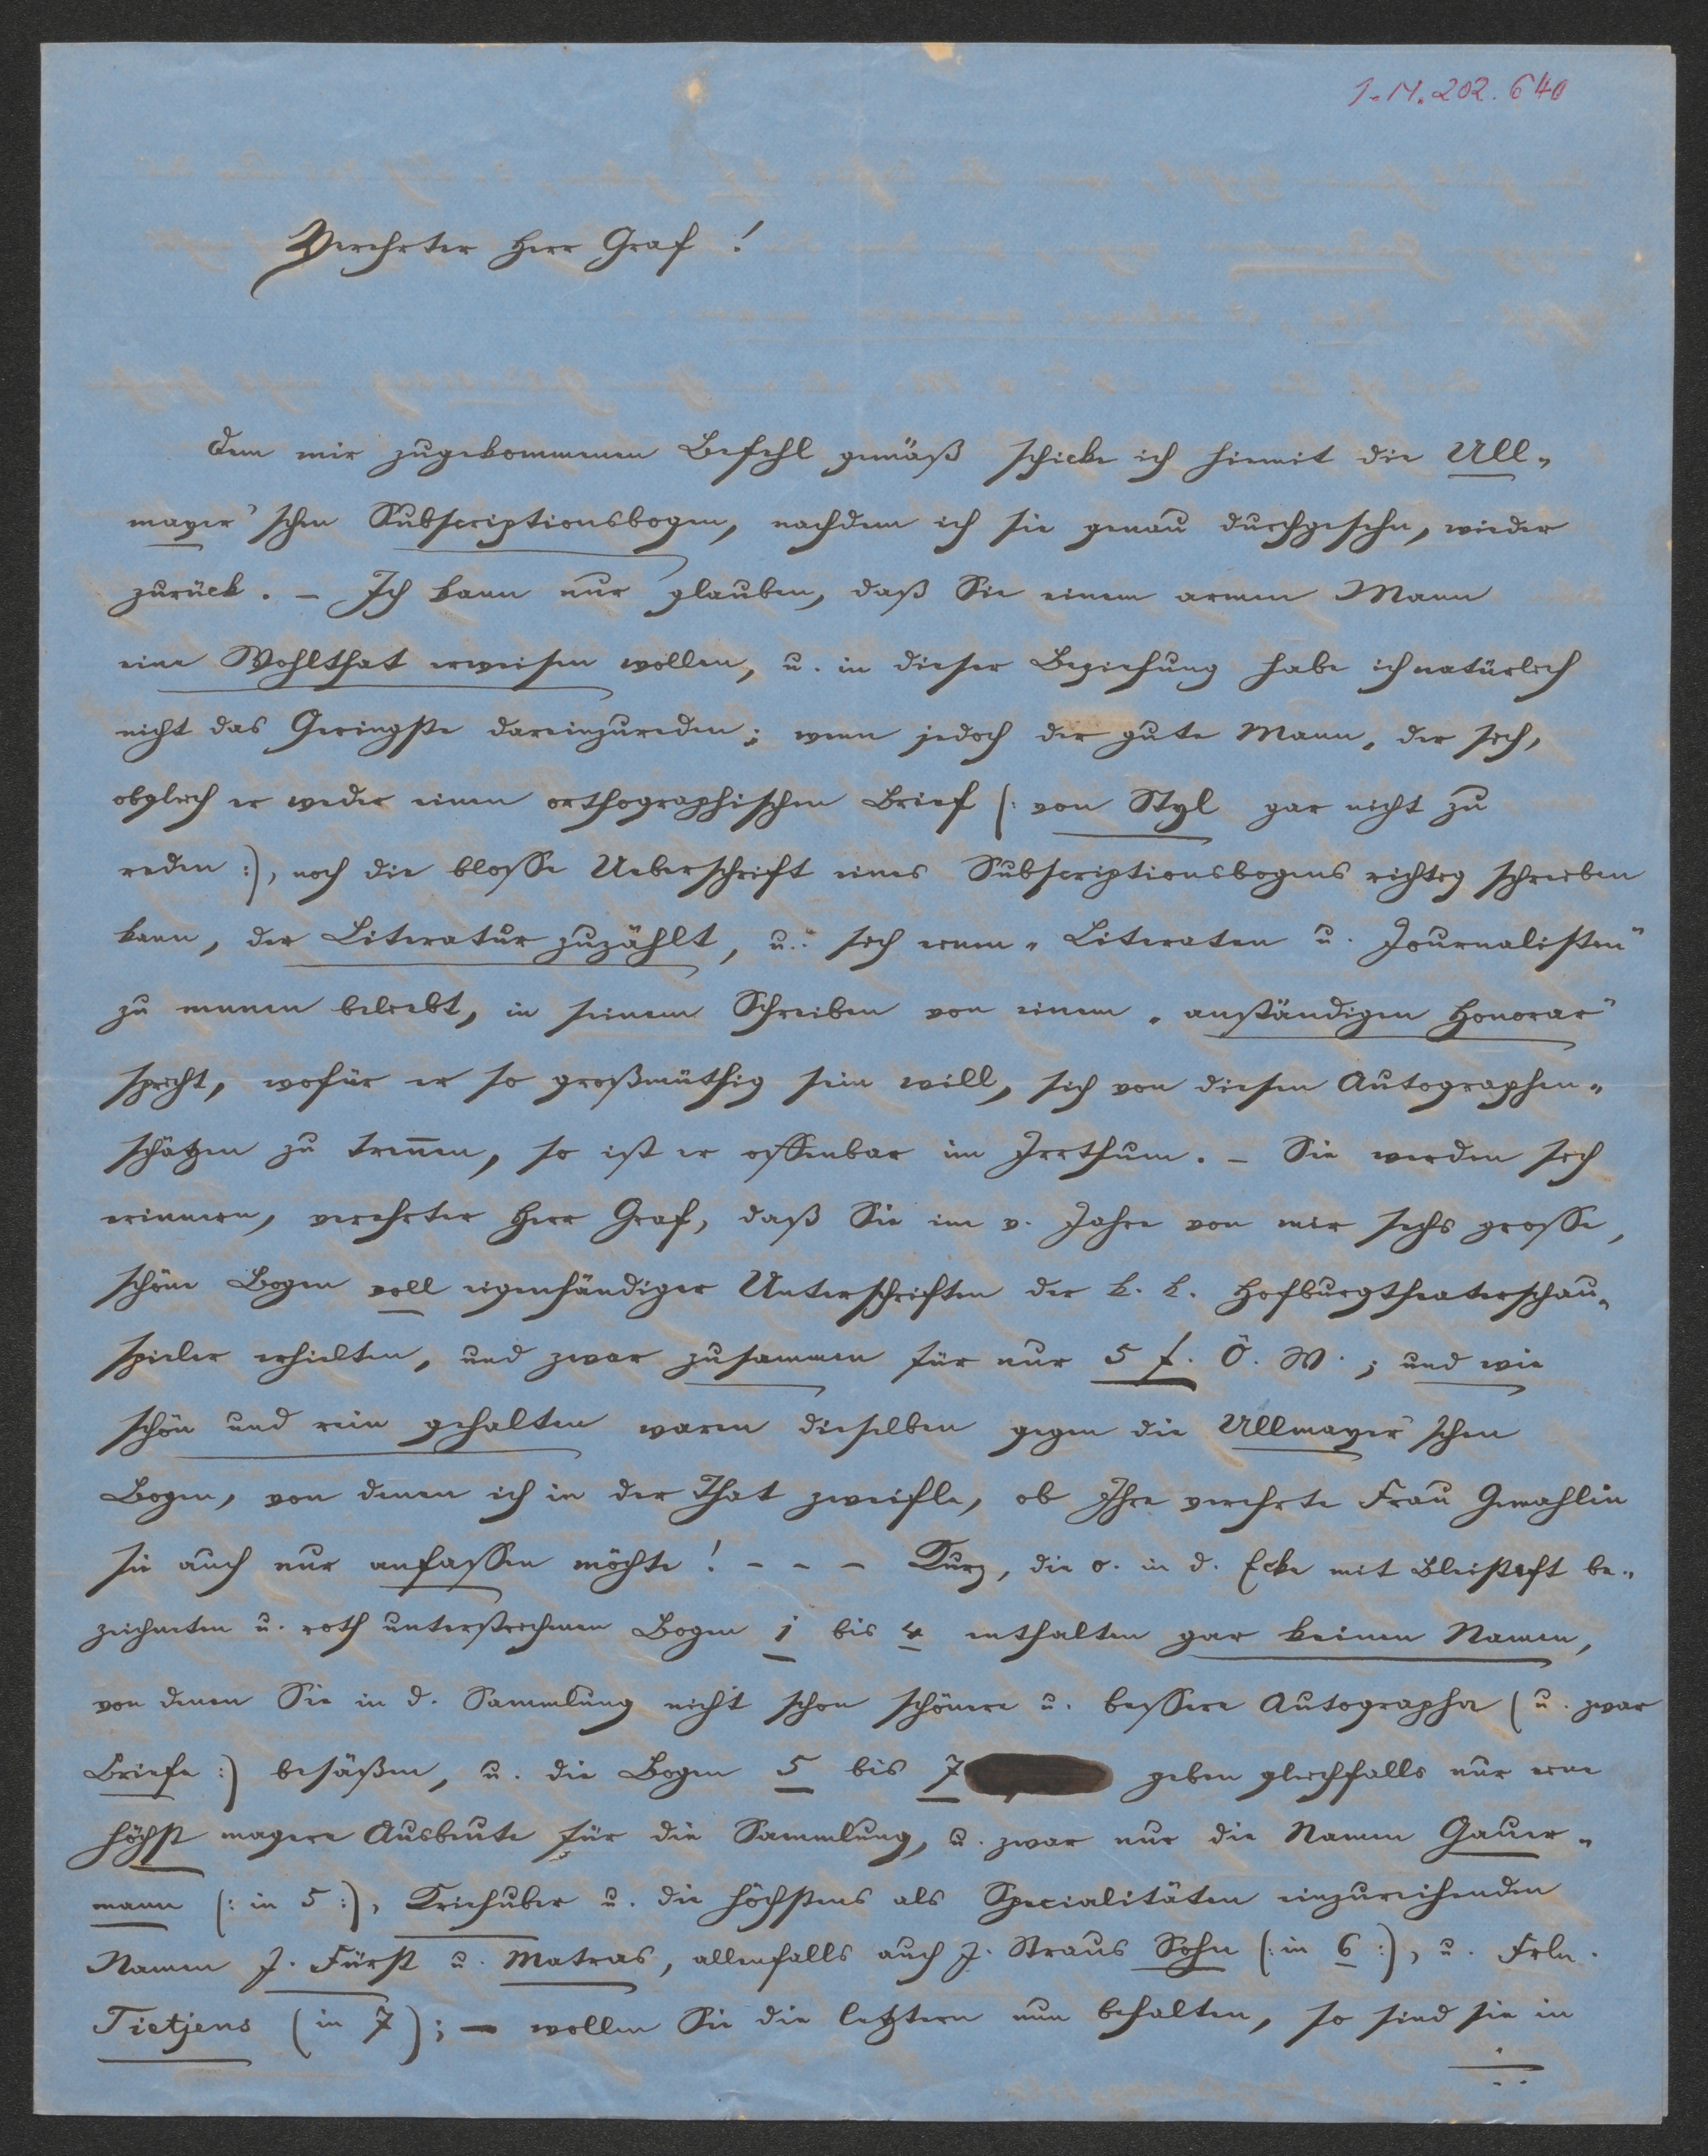 I.N. 202.640
Verehrter Herr Graf!
Dem mir zugekommenen Befehl gemäß schicke ich hiemit die Ull„
mayer'schen Subscriptionsbogen, nachdem ich sie genau durchgesehn, wieder
zurück. – Ich kann nur glauben, daß Sie einem armen Mann
eine Wohlthat erweisen wollen, u. in dieser Beziehung habe ich natürlich
nicht das Geringste dareinzureden; wenn jedoch der gute Mann, der sich,
obgleich er weder einen orthographischen Brief (: von Styl gar nicht zu
reden :), noch die blosse Ueberschrift eines Subscriptionsbogens richtig schreiben
kann, der Literatur zuzählt, u. sich einen „Literaten u. Journalisten"
zu nennen beliebt, in seinem Schreiben von einem „anständigen Honorar"
spricht, wofür er so großmüthig sein will, sich von diesen Autographen„
schätzen zu treñen, so ist er offenbar im Irrthum. – Sie werden sich
erinnern, verehrter Herr Graf, daß Sie im v. Jahre von mir sechs grosse,
schöne Bogen voll eigenhändiger Unterschriften der k. k. Hofburgtheaterschau„
spieler erhielten, und zwar zusammen für nur 5 f. Ö. W.; und wie
schön und rein gehalten waren dieselben gegen die Ullmayer'schen
Bogen, von denen ich in der That zweifle, ob Ihre verehrte Frau Gemahlin
sie auch nur anfassen möchte! – – – Kurz, die o. in d. Ecke mit Bleistift be„
zeichneten u. roth unterstrichenen Bogen 1 bis 4 enthalten gar keinen Namen,
von denen Sie in d. Sammlung nicht schon schönere u. bessere Autographa (u. zwar
Briefe :) besäßen, u. die Bogen 5 bis 7 geben gleichfalls nur eine
höchst magere Ausbeute für die Sammlung, u. zwar nur die Namen Gauer„
mann (: in 5 :), Kriehuber u. die höchstens als Specialitäten einzureihenden
Namen J. Fürst u. Matras, allenfalls auch J. Straus Sohn (: in 6 :), u. Frln.
Tietjens (in 7); – wollen Sie die letztern nun behalten, so sind sie in